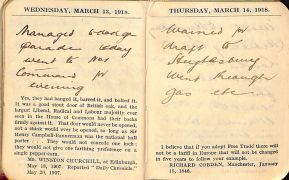 WEDNESDAY, MARCH 13, 1918.
Managed to dodge
parade today
went to
Command for
evening
Yes, they had banged it, barred it, and bolted it.
It was a good stout door of British oak, and the
largest Liberal, Radical and Labour majority ever
seen in the House of Commons had their backs
firmly against it. That door would never be opened,
not a chink would ever be opened, so long as Sir
Henry Campbell-Bannerman was the national ball
porter. They would not concede one inch; they
would not give one farthing preference on a
single peppercorn.
Mr. WINSTON CHURCHILL, at Edinburgh,
May 18, 1907. Reported "Daily Chronicle,"
May 20, 1907.
THURSDAY, MARCH 14, 1918.
Warned for
draft to
went through
gas etc
I believe that if you adopt Free Trade there will
not be a tariff in Europe that will not be changed
in five years to follow your example.
RICHARD COBDEN, Manchester, January
15, 1846.